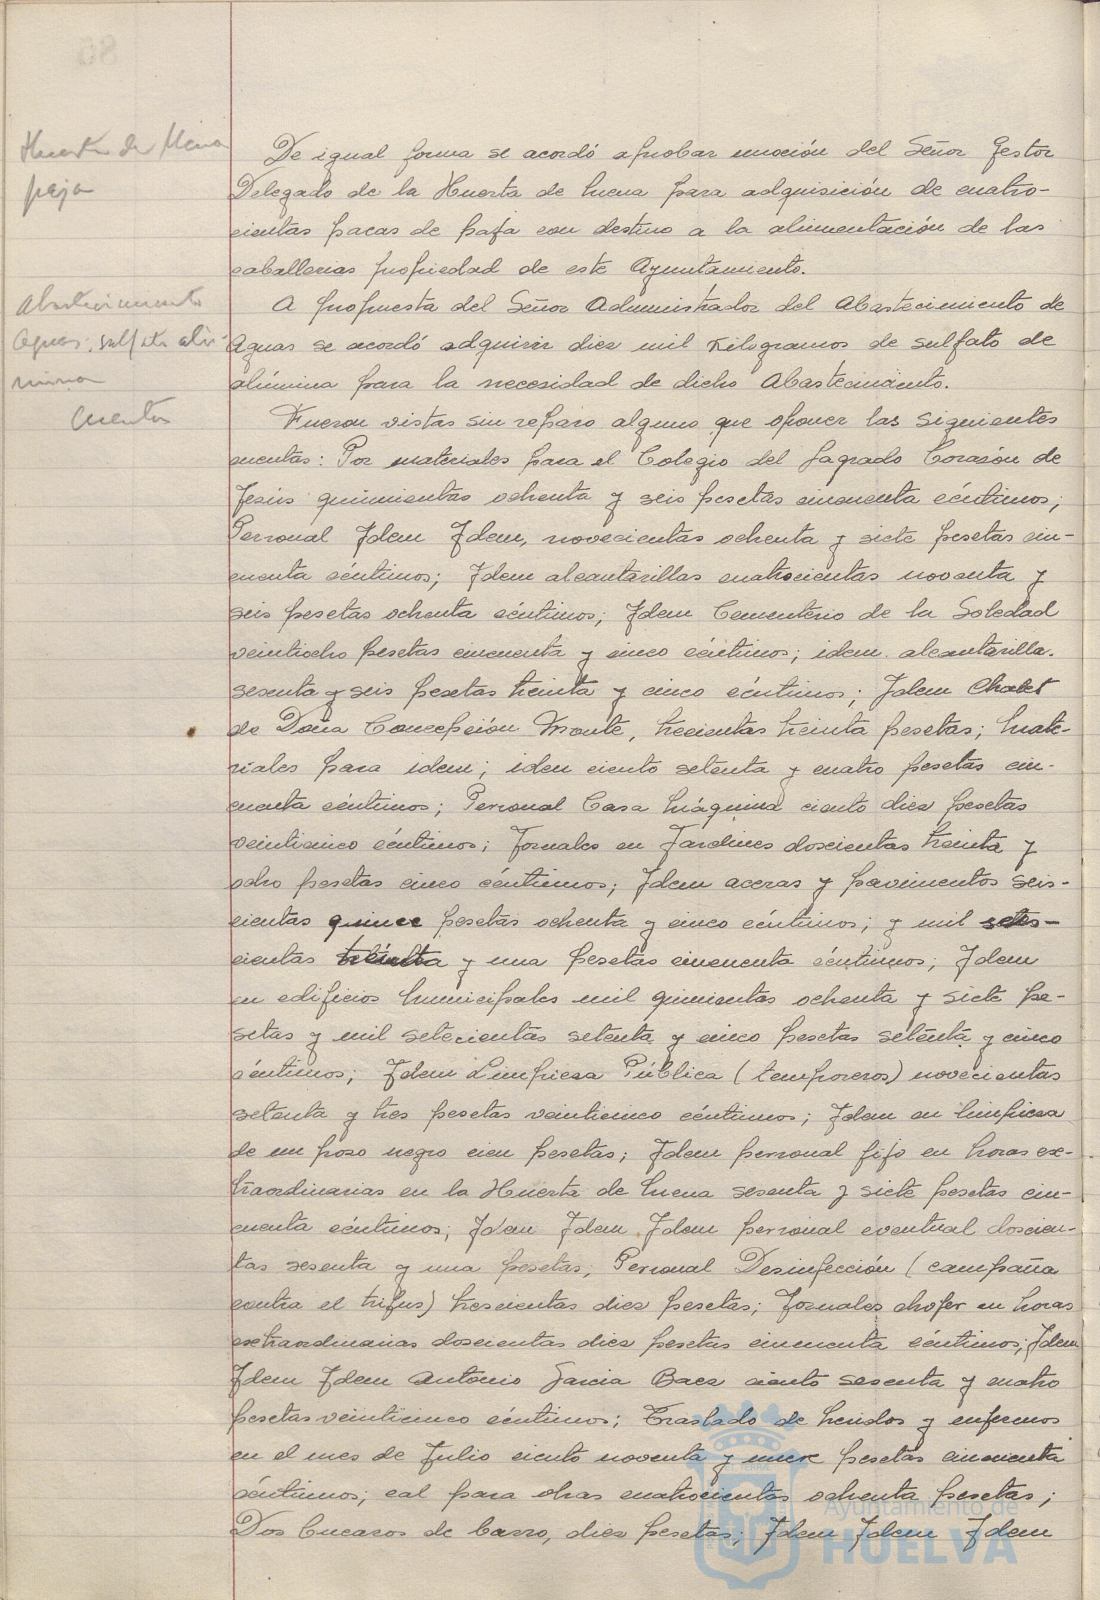 Huerta de Mena
paja
De igual forma se acordó aprobar moción del Señor Gestor
Delegado de la Huerta de Mena para adquisición de cuatro-
cientas pacas de paja con destino a la alimentación de las
caballerias propiedad de este Ayuntamiento.
Abastecimiento
Aguas, sulfato alú-
mina
A propuesta del Señor Administrador del Abastecimiento de
Aguas se acordó adquirir diez mil Kilogramos de sulfato de
alúmina para la necesidad de dicho Abastecimiento.
Cuentas
Fueron vistas sin reparo alguno que oponer las siguientes
cuentas: Por materiales para el Colegio del Sagrado Corazón de
Jesús quinientas ochenta y seis pesetas cincuenta céntimos;
Personal Idem Idem, novecientas ochenta y siete pesetas cin-
cuenta céntimos; Idem alcantarillas cuatrocientas noventa y
seis pesetas ochenta céntimos; Idem Cementerio de la Soledad
veintiocho pesetas cincuenta y cinco céntimos; idem alcantarilla.
sesenta y seis pesetas treinta y cinco céntimos; Idem Chalet
de Doña Concepción Monte, trecientas treinta pesetas; Mate-
riales para idem; idem ciento setenta y cuatro pesetas cin-
cuenta céntimos; Personal Casa Máquina ciento diez pesetas
veinticinco céntimos; Jornales en Jardines doscientas treinta y
ocho pesetas cinco céntimos; Idem aceras y pavimentos seis-
cientas quince pesetas ochenta y cinco céntimos; y mil
cientas treinta y una pesetas cincuenta céntimos; Idem
en edificios Municipales mil quinientas ochenta y siete pe-
setas y mil setecientas setenta y cinco pesetas setenta y cinco
céntimos; Idem Limpieza Pública (temporeros) novecientas
setenta y tres pesetas veinticinco céntimos; Idem en limpieza
de un poso negro cien pesetas; Idem personal fijo en horas ex-
traordinarias en la Huerta de Mena sesenta y siete pesetas cin-
cuenta céntimos; Idem Idem Idem personal eventual doscien-
tas sesenta y una pesetas, Personal Desinfección (campaña
contra el trifus) trescientas diez pesetas; Jornales chofer en horas
extraordinarias doscientas diez pesetas cincuenta céntimos; Idem
Idem Idem Antonio Garcia Baez ciento sesenta y cuatro
pesetas veinticinco céntimos; Traslado de heridos y enfermos
en el mes de Julio ciento noventa y nueve pesetas cincuenta
céntimos; cal para obras cuatrocientas ochenta pesetas;
Dos Bucaros de barro, diez pesetas; Idem Idem Idem
Ayuntamiento de
HUELVA